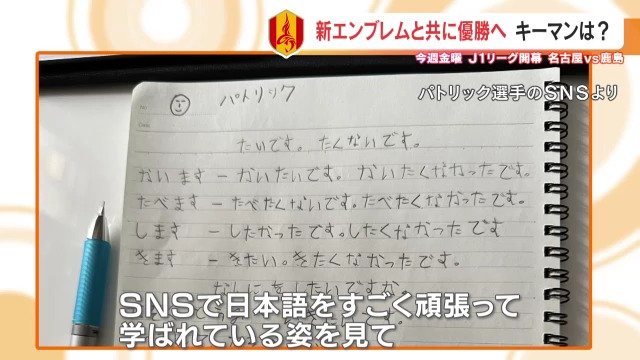 新エンブレムと共に優勝へ キーマンは?
今週金曜 J1リーグ開幕 名古屋vs鹿島
パトリック選手のSNSより
No.
Date
パトリック
たいです。たくないです。
かいます ー かいたいです。かいたくなかったです。
たべます ー たべたくないです。たべたくなかったです。
します ー したかったです。したくなかったです
きます ー きたい。きたくなかったです。
なにをしたいですか。
SNSで日本語をすごく頑張って
学ばれている姿を見て